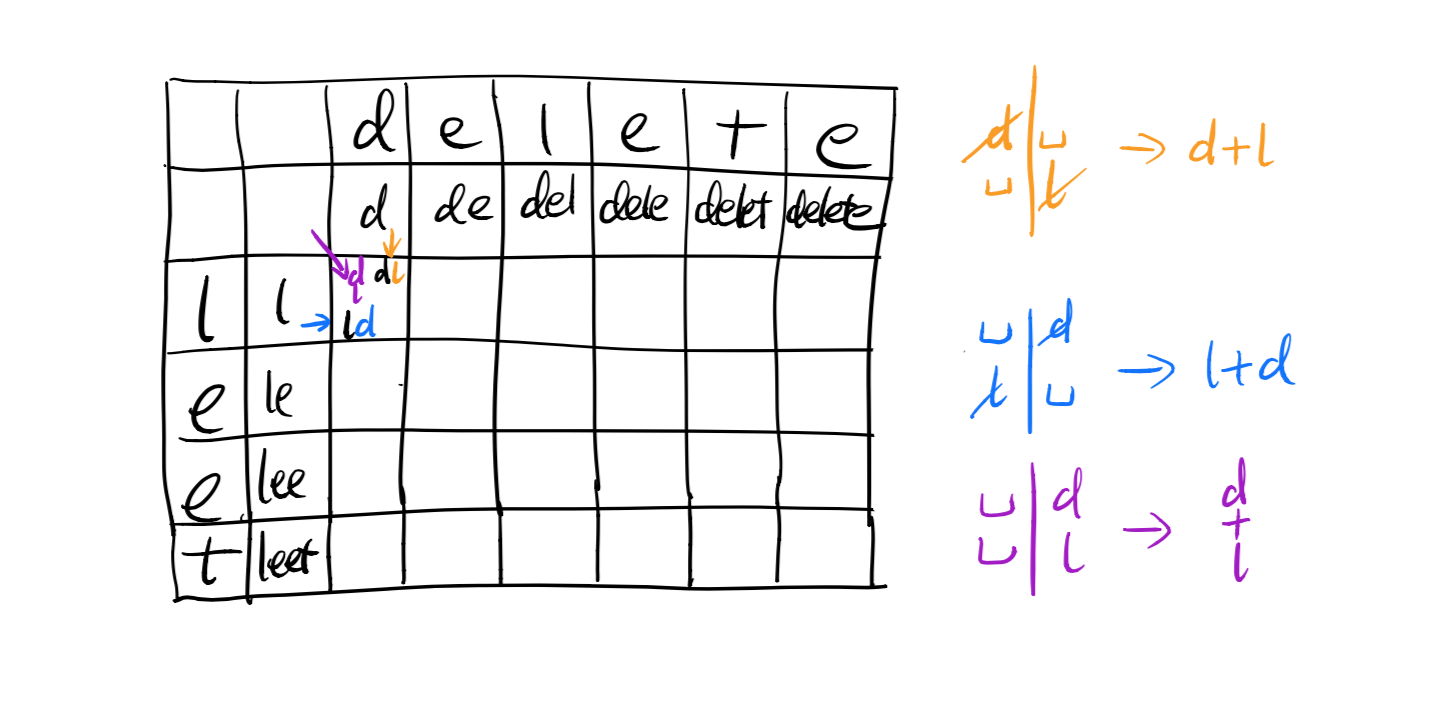 d e l e t e
d de del dele delet delete
l l d dl
ld
e le
e lee
t leet
d ␣ → d+l
␣ l
␣ d → l+d
l ␣
␣ d → d
+
␣ l l